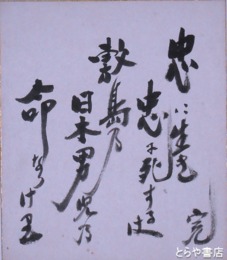 忠に生き
忠に死するは
敷島乃
日本男児乃
命なりけり
完
とらや書店